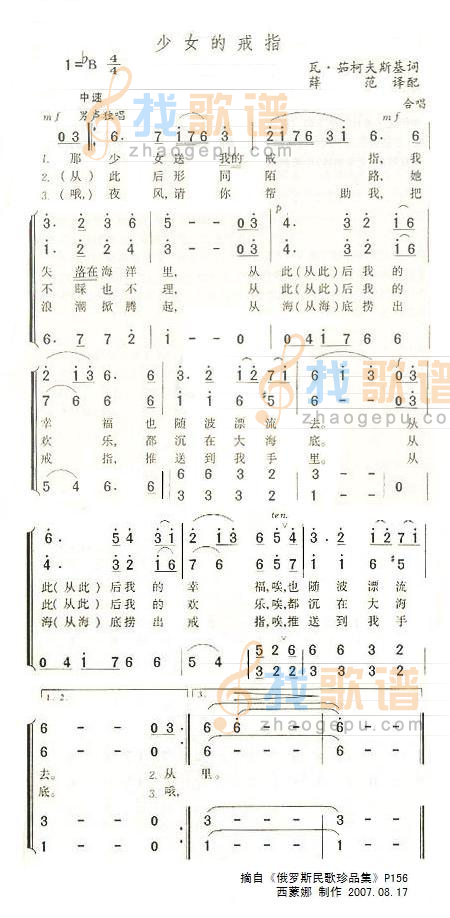 少女的戒指
1=♭B 4/4
瓦·茹柯夫斯基词
薛 范 译配
中速
合唱
mf 男声独唱 mf
0 3 6. 7 i 1 7 6 3. 2 i 7 6 3 i 6. 6
1. 那 少 女 送 我的 戒 指,我
2.(从)此 后 形 同 陌 路,她
3.(哦,)夜 风,请 你 帮 助 我,把
找歌谱
zhaogepu.com
p
3. 2 3 6 5 - - 0 3 4. 3 2 2 i 6
1. 2 2 4 3 - - 0 3 4. 3 2 2 i 6
失 落在 海 洋 里, 从 此(从此)后 我 的
不 睬 也 不 理, 从 此(从此)后 我 的
浪 潮 掀 腾 起, 从 海(从海)底 捞 出
6. 7 7 2 1 - - 0 0 4 i 7 6 6
找歌谱
zhaogepu.com
f
2 i 3 6. 6 3. 2 i 2 7 i 6 i 3 - 0 3
7 6 6 6. 6 6. 6 1 i #5 6 - - 0 3
幸 福 也 随 波 漂 流 去。 从
欢 乐,都 沉 在 大 海 底。 从
戒 指,推 送 到 我 手 里。 从
5 4 6. 6 5 2 6 6 3 - - 0
3 3 3 2 1 - -
ten.
6. 5 4 3 1 2 i 3 6 5 4 3. 2 i 2 7 i
4. 3 2 2 i 6 7 6 6 6 5 3 6 i i 6 #5
此(从此)后 我 的 幸 福,唉,也 随 波 漂 流
此(从此)后 我 的 欢 乐,唉,都 沉 在 大 海
海(从海)底 捞 出 戒 指,唉,推 送 到 我 手
0 4 i 7 6 6 6 5 4 5 2 6 6
3 3 3 2
找歌谱
zhaogepu.com
1. 2. 3.
6 - - 0 3 6 - - - 6 - - 0
6 - - 0 3 6 - - - 6 - - 0
去。 2.从 里。
底。 3.哦,
3 - - 0 3 - - - 3 - - 0
1 - - 0 1 - - - 1 - - 0
摘自《俄罗斯民歌珍品集》P156
西蒙娜 制作 2007.08.17